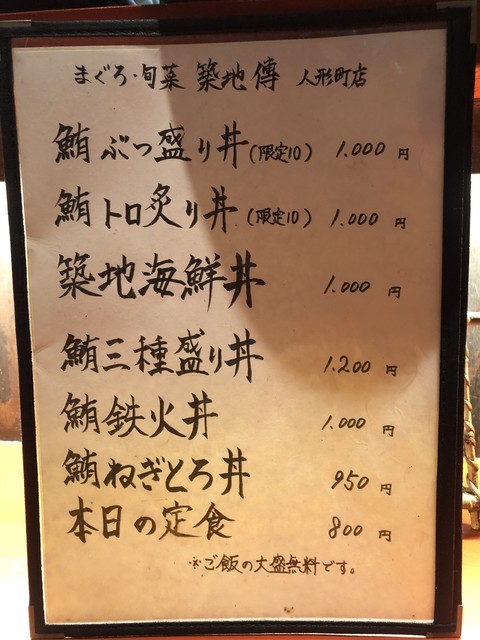 まぐろ・旬菜 築地傳 人形町店
鮪ぶっ盛り丼(限定10) 1.000円
鮪トロ炙り丼(限定10) 1.000円
築地海鮮丼 1.000円
鮪三種盛り丼 1.200円
鮪鉄火丼 1.000円
鮪ねぎとろ丼 950円
本日の定食 800円
※ご飯の大盛無料です。